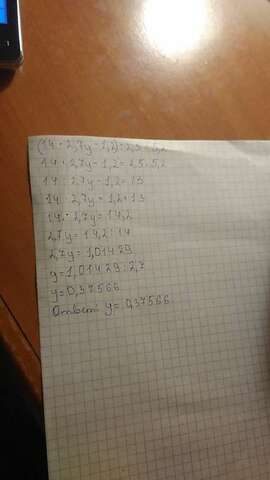 (14 · 2,7y - 1,2) : 2,5 = 5,2
14 · 2,7y - 1,2 = 2,5 · 5,2
14 · 2,7y - 1,2 = 13
14 · 2,7y = 1,2 + 13
14 · 2,7y = 14,2
2,7y = 14,2 : 14
2,7y = 1,01429
y = 1,01429 : 2,7
y = 0,37566
Ответ: y = 0,37566